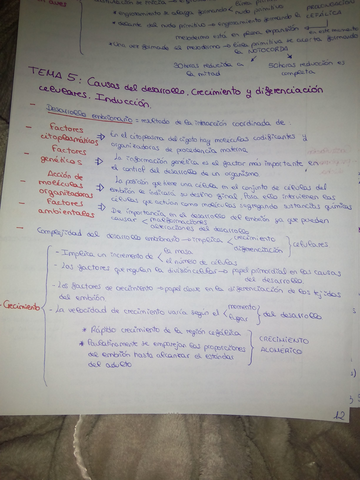 alargamiento
nudo primitivo
CEFÁLICA
mesodermo está en plena expansión
en este momento
Una vez formado el mesodermo la línea primitiva se acorta formando
la NOTOCORDA
30 horas reducida a
la mitad
50 horas reducción es
completa
TEMA 5: Causas del desarrollo, Crecimiento y diferenciación
celulares. Inducción.
- Desarrollo embrionario: resultado de la interacción coordinada de:
- Factores citoplasmáticos → En el citoplasma del cigoto hay moléculas codificantes y
organizadoras de procedencia materna
- Factores genéticos → La información genética es el factor mas importante en
el control del desarrollo de un organismo
- Acción de moléculas organizadoras → La posición que tiene una célula en el conjunto de células del
embrión le indican su destino final. Para ello intervienen las
células que actúan como moléculas segregando sustancias químicas
- Factores ambientales → De importancia en el desarrollo del embrión ya que pueden
causar malformaciones
alteraciones del desarrollo
- Complejidad del desarrollo embrionario → implica crecimiento
diferenciación
celulares
- Crecimiento
- Implica un incremento de la masa
el número de células
- Los factores que regulan la división celular → papel primordial en las causas
del desarrollo
- Los factores de crecimiento → papel clave en la diferenciación de los tejidos
del embrión
- La velocidad de crecimiento varía según el momento
lugar
del desarrollo
* Rápido crecimiento de la región cefálica
* Posteriormente se emparejan las proporciones
del embrión hasta alcanzar el estándar
del adulto
CRECIMIENTO
ALOMÉTRICO
12